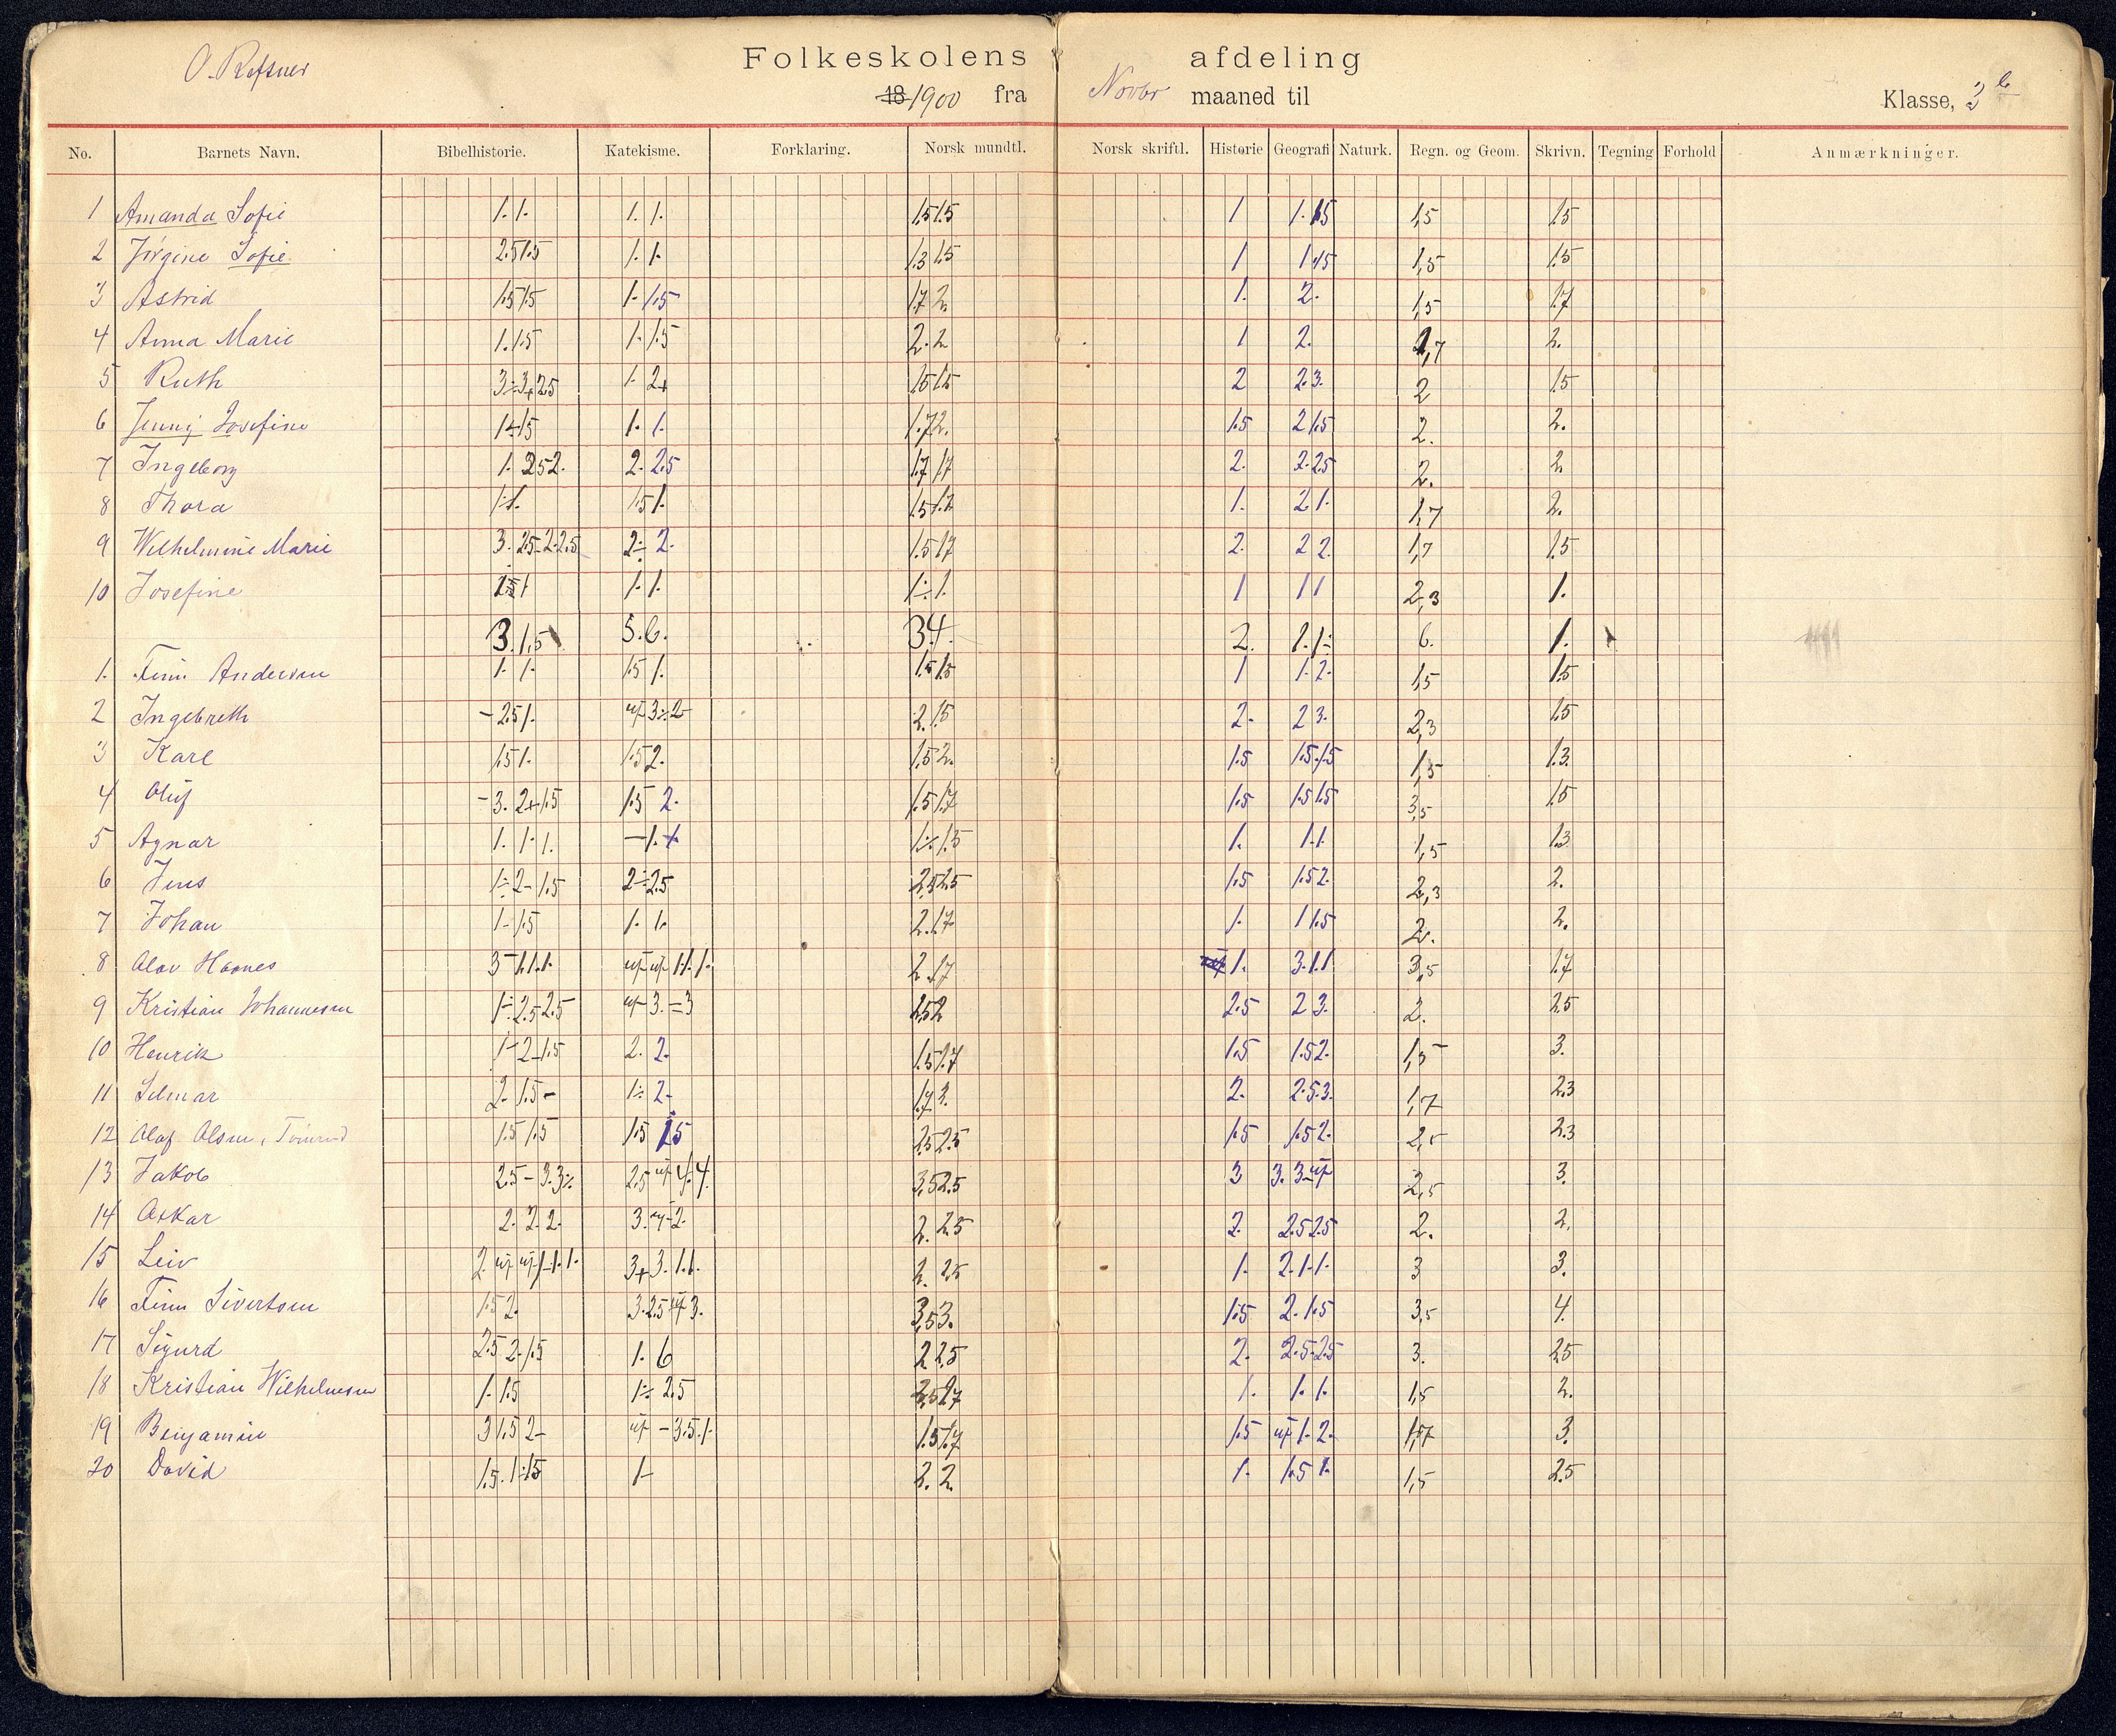 O. Refsnes
Folkeskolens afdeling
18 1900 fra Novbr maaned til Klasse, 3 b
No. Barnets Navn. Bibelhistorie. Katekisme. Forklaring. Norsk mundtl. Norsk skriftl. Historie Geografi Naturk. Regn. og Geom. Skrivn. Tegning Forhold Anmærkninger.
1 Amanda Sofie 1. 1. 1. 1. 1.5 1.5 1 1. 1.5 1,5 1.5
2 Jørgine Sofie 2.5 1.5 1. 1. 1.3 1.5 1 1 1.5 1,5 1.5
3 Astrid 1.5 1.5 1. 1.5 1.7 2. 1. 2. 1,5 1.7
4 Anna Marie 1. 1.5 1. 1.5 2. 2. 1 2. 1,7 2.
5 Ruth 3÷ 3+ 2.5 1. 2+ 1.5 1.5 2 2.3. 2 1.5
6 Jenny Josefine 1÷ 1.5 1. 1. 1.7 2. 1.5 2 1.5 2. 2.
7 Ingeborg 1. 2.5 2. 2. 2.5 1.7 1.7 2. 2. 2.5 2. 2
8 Thora 1÷ 1. 1.5 1. 1.5 1.7 1. 2 1. 1,7 2.
9 Wilhelmine Marie 3. 2.5- 2. 2.5 2÷ 2. 1.5 1.7 2. 2 2. 1,7 1.5
10 Josefine 1. 1. 1÷ 1. 1 1 1 2,3 1.
3. 1.5 5. 6. 3 4. 2. 1. 1÷ 6. 1.
1. Finn Andersen 1. 1. 1.5 1. 1.5 1.5 1 1. 2. 1,5 1.5
2 Ingebreth - 2.5 1. 3÷ 2- 2. 1.5 2. 2 3. 2,3 1.5
3 Karl 1.5 1. 1.5 2. 1.5 2. 1.5 1.5 1.5 1,5 1.3.
4 Oluf - 3. 2+ 1.5 1.5 2. 1.5 1.7 1.5 1.5 1.5 3,5 1.5
5 Agnar 1. 1. 1. - 1. 1÷ 1.5 1. 1. 1. 1,5 1.3
6 Jens 1÷ 2- 1.5 2÷ 2.5 2.5 2.5 1.5 1.5 2. 2,3 2.
7 Johan 1- 1.5 1. 1. 2. 1.7 1. 1 1.5 2. 2.
8 Olav Hannes 3- 1. 1. 1. 1. 1. 1. 2. 1.7 1. 3. 1. 1 3,5 1.7
9 Kristian Johannesen 1÷ 2.5 2.5 3. - 3 2.5 2 2.5 2 3. 2. 2.5
10 Henrik 1- 2- 1.5 2. 2. 1.5 1.7 1.5 1.5 2. 1,5 3.
11 Selmar 2- 1.5- 1÷ 2- 1.7 2. 2. 2.5 3. 1,7 2.3
12 Olaf Olsen, 1.5 1.5 1.5 1.5 2.5 2.5 1.5 1.5 2. 2,5 2.3
13 Jakob 2.5- 3. 3÷ 2.5 4. 4. 3.5 2.5 3 3. 3- 2,5 3.
14 Oskar 2. 2. 2. 3. 2. 2. 2.5 2. 2.5 2.5 2. 2.
15 Leiv 2 1. 1. 1. 3+ 3. 1. 1. 2. 2.5 1. 2. 1. 1. 3 3.
16 Finn Sivertsen 1.5 2. 3. 2.5 3. 3.5 3. 1.5 2. 1.5 3,5 4.
17 Sigurd 2.5 2. 1.5 1. 6 2 2.5 2. 2.5 2.5 3. 2.5
18 Kristian Wilhelmsen 1. 1.5 1÷ 2.5 1. 1. 1. 1,5 2.
19 Benjamin 3 1.5 2- - 3.5 1. 1.5 1.7 1.5 1. 2. 1,7 3.
20 David 1.5. 1÷ 1.5 1- 2. 2. 1. 1.5 1. 1,5 2.5